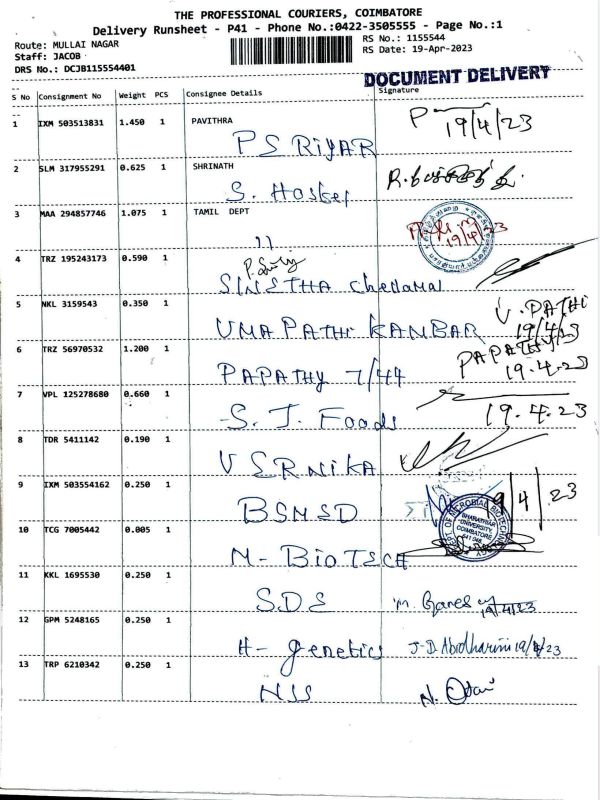 THE PROFESSIONAL COURIERS, COIMBATORE
Delivery Runsheet - P41 - Phone No.:0422-3505555 - Page No.:1
Route: MULLAI NAGAR
RS No.: 1155544
Staff: JACOB
RS Date: 19-Apr-2023
DRS No.: DCJB115554401
DOCUMENT DELIVERY
S No Consignment No Weight PCS Consignee Details Signature
1 IXM 503513831 1.450 1 PAVITHRA
19/4/23
PS RiyAR
2 SLM 317955291 0.625 1 SHRINATH
S. Hostel
3 MAA 294857746 1.075 1 TAMIL DEPT
19/4/23
4 TRZ 195243173 0.590 1
5 NKL 3159543 0.350 1
V. PATHI
UMA PATHI KANBAR 19/4/23
6 TRZ 56970532 1.200 1
PAPATHY
PAPATHY 7/44 19.4.23
7 VPL 125278680 0.660 1
S. J. Foods 19.4.23
8 TDR 5411142 0.190 1
V SERNIKA
9 IXM 503554162 0.250 1
19/4/23
BSMSD
DEPT OF MICROBIAL BIOTECHNOLOGY
BHARATHIAR UNIVERSITY, COIMBATORE 641 046
10 TCG 7005442 0.005 1
M-BIOTECH
11 KKL 1695530 0.250 1
SDE M. Ganes 19/4/23
12 GPM 5248165 0.250 1
H- genetics J-D Abidharini 19/4/23
13 TRP 6210342 0.250 1
NSS